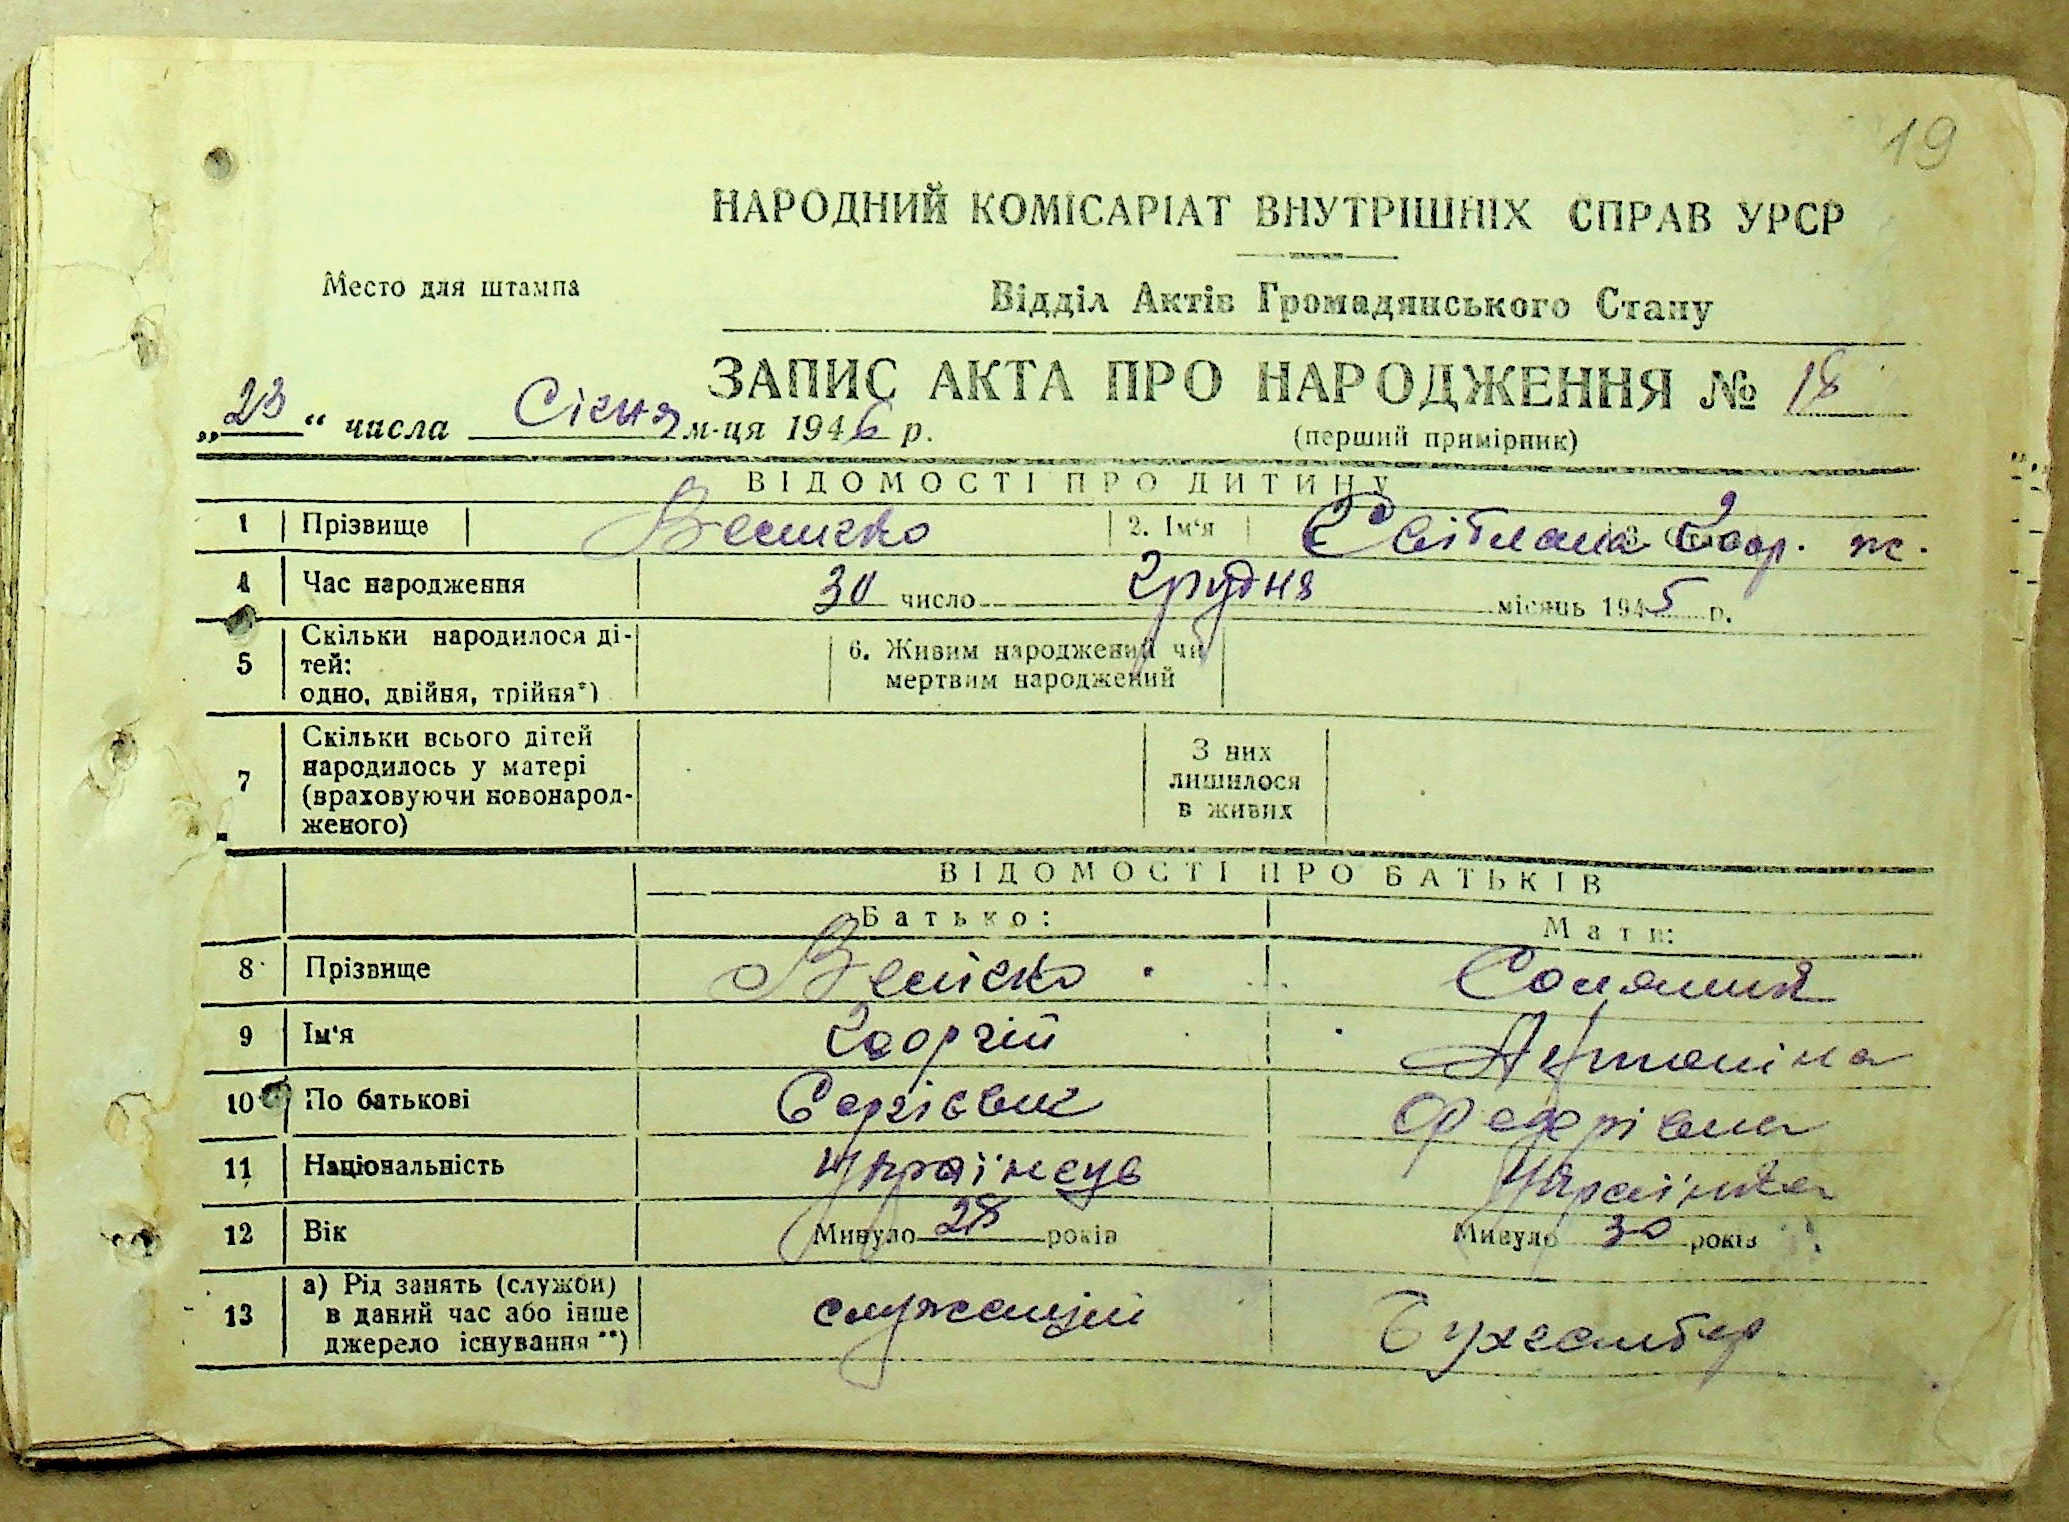 19
НАРОДНИЙ КОМІСАРІАТ ВНУТРІШНІХ СПРАВ УРСР
Место для штампа
Відділ Актів Громадянського Стану
ЗАПИС АКТА ПРО НАРОДЖЕННЯ № 18
„23“ числа Січня м-ця 1946 р.
(перший примірник)
ВІДОМОСТІ ПРО ДИТИНУ
1 Прізвище 2. Ім'я Світлана Геор. ж.
4 Час народження 30 число Грудня місяць 1945 р.
5 Скільки народилося ді-
тей:
одно, двійня, трійня*)
6. Живим народжений чи
мертвим народжений
7 Скільки всього дітей
народилось у матері
(враховуючи новонарод-
женого)
З них
лишилося
в живих
ВІДОМОСТІ ПРО БАТЬКІВ
Батько: Мати:
8 Прізвище
9 Ім'я Георгій Антоніна
10 По батькові Сергієвич Федорівна
11 Національність Українець Українка
12 Вік Минуло 28 років Минуло 30 років
13 а) Рід занять (служби)
в даний час або інше
джерело існування**)
служащий Бухгалтер